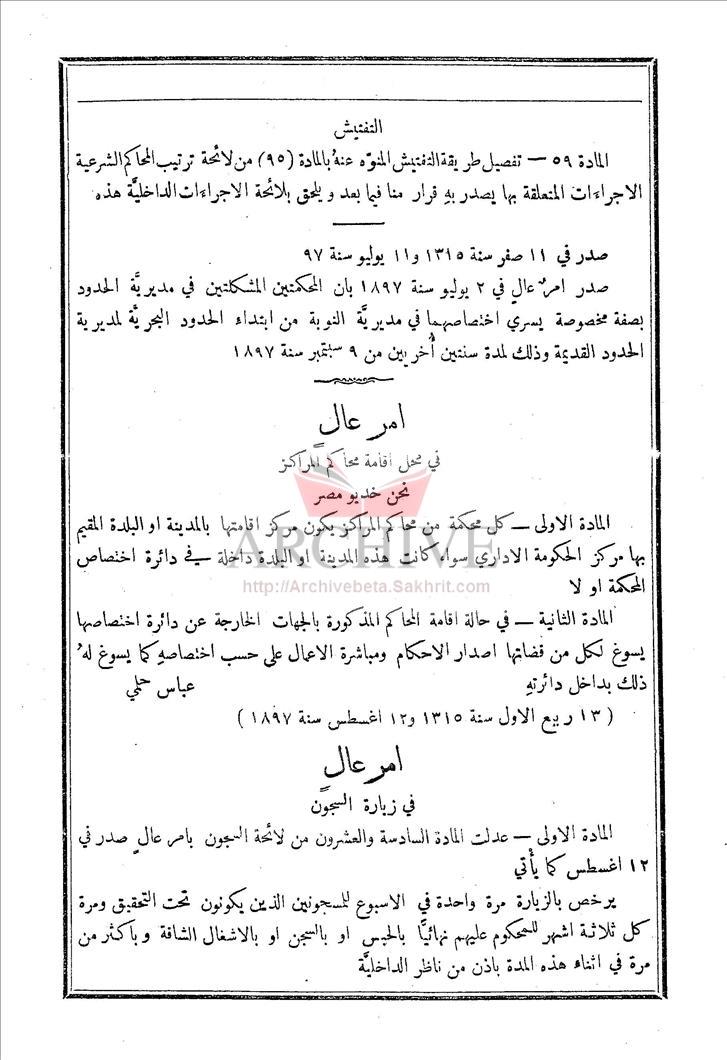 التفتيش
المادة ٥٩ — تفصيل طريقة التفتيش المنوّه عنهُ بالمادة (٩٥) من لائحة ترتيب المحاكم الشرعية
الاجراءات المتعلقة بها يصدر بهِ قرار منا فيما بعد ويلحق بلائحة الاجراءات الداخليَّة هذه
صدر في ١١ صفر سنة ١٣١٥ و١١ يوليو سنة ٩٧
صدر امرٌ عالٍ في ٢ يوليو سنة ١٨٩٧ بان المحكمتين المشكلتين في مديريَّة الحدود
بصفة مخصوصة يسري اختصاصهما في مديريَّة النوبة من ابتداء الحدود البحريَّة لمديرية
الحدود القديمة وذلك لمدة سنتين أُخريين من ٩ سبتمبر سنة ١٨٩٧
امر عالٍ
في محل اقامة محاكم المراكز
نحن خديو مصر
المادة الاولى — كل محكمة من محاكم المراكز يكون مركز اقامتها بالمدينة او البلدة المقيم
بها مركز الحكومة الاداري سواء كانت هذه المدينة او البلدة داخلة في دائرة اختصاص
المحكمة او لا
المادة الثانية — في حالة اقامة المحاكم المذكورة بالجهات الخارجة عن دائرة اختصاصها
يسوغ لكل من قضاتها اصدار الاحكام ومباشرة الاعمال على حسب اختصاصهِ كما يسوغ لهُ
ذلك بداخل دائرتهِ عباس حلمي
(١٣ ربيع الاول سنة ١٣١٥ و١٢ اغسطس سنة ١٨٩٧)
امر عالٍ
في زيارة السجون
المادة الاولى — عدلت المادة السادسة والعشرون من لائحة السجون بامر عالٍ صدر في
١٢ اغسطس كما يأتي
يرخص بالزيارة مرة واحدة في الاسبوع للمسجونين الذين يكونون تحت التحقيق ومرة
كل ثلاثة اشهر للمحكوم عليهم نهائيًّا بالحبس او بالسجن او بالاشغال الشاقة وباكثر من
مرة في اثناء هذه المدة باذن من ناظر الداخليَّة
ARCHIVE
http://Archivebeta.Sakhrit.com